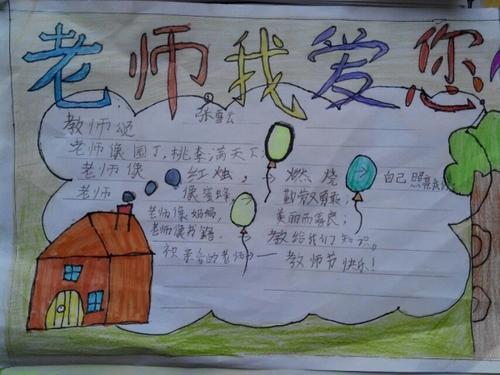 老师我爱您
教师颂
老师像园丁,桃李满天下,
老师像红烛,燃烧自己照亮我们,
老师像蜜蜂,勤劳勇敢;
老师像妈妈,美丽而善良;
老师像书籍,教给我们知识。
祝亲爱的老师——教师节快乐!